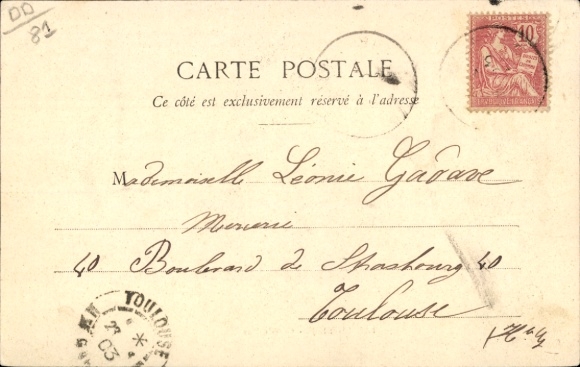 DD
81
POSTES
10
REPUBLIQUE FRANÇAISE
CARTE POSTALE
Ce côté est exclusivement réservé à l'adresse
Mademoiselle Léonie Gadave
Mercerie
40 Boulevard de Strasbourg 40
Toulouse
TOULOUSE
03